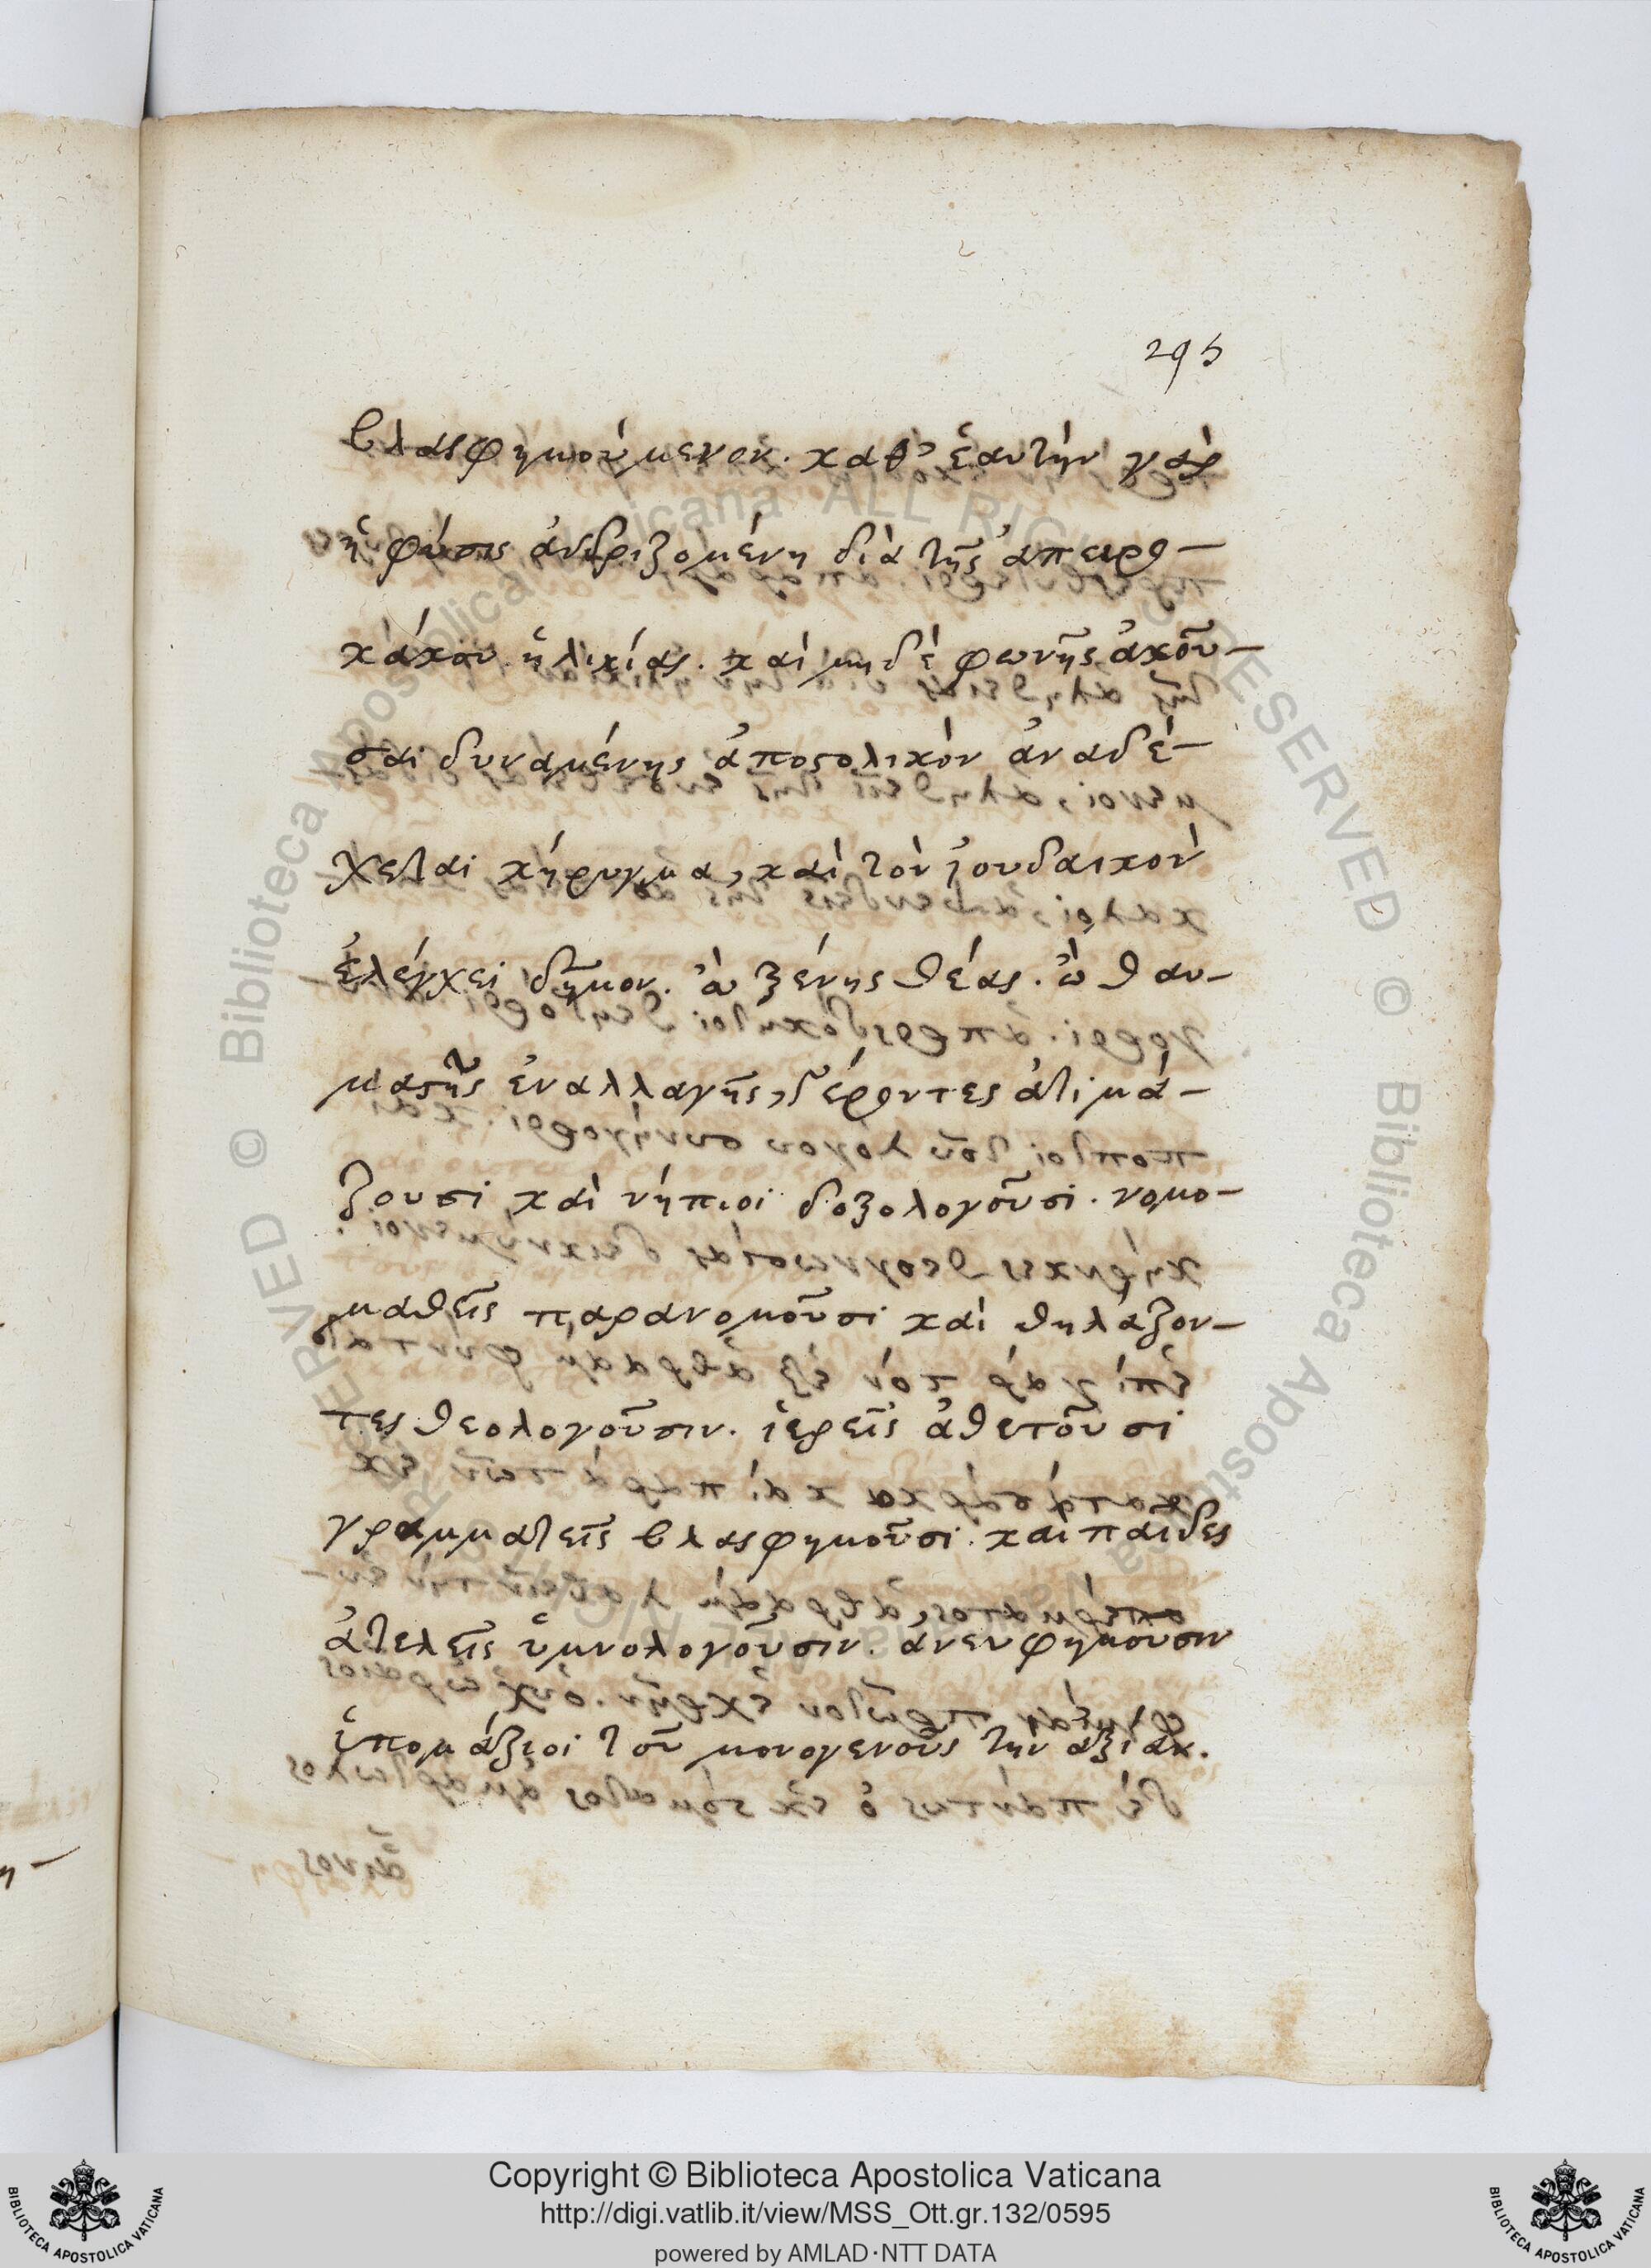 295
βλασφημούμενον. καθ' ἑαυτὴν γὰρ
ἡ φύσις ἀνδριζομένη διὰ τῆς ἀπειρο-
κάκου ἡλικίας. καὶ μηδὲ φωνῆς ἀκοῦ-
σαι δυναμένης ἀποστολικὸν ἀναδέ-
χεται κήρυγμα, καὶ τὸν ἰουδαικὸν
ἐλέγχει δῆμον. ὢ ξένης θέας. ὢ θαυ-
μαστῆς ἐναλλαγῆς, γέροντες ἀτιμά-
ζουσι καὶ νήπιοι δοξολογοῦσι. νομο-
μαθεῖς παρανομοῦσι καὶ θηλάζον-
τες θεολογοῦσιν. ἱερεῖς ἀθετοῦσι
γραμματεῖς βλασφημοῦσι. καὶ παῖδες
ἀτελεῖς ὑμνολογοῦσιν. ἀνευφημοῦσιν
ὑπομάζιοι τοῦ μονογενοῦς τὴν ἀξίαν.
Copyright © Biblioteca Apostolica Vaticana
http://digi.vatlib.it/view/MSS_Ott.gr.132/0595
powered by AMLAD·NTT DATA
BIBLIOTECA APOSTOLICA VATICANA
BIBLIOTECA APOSTOLICA VATICANA